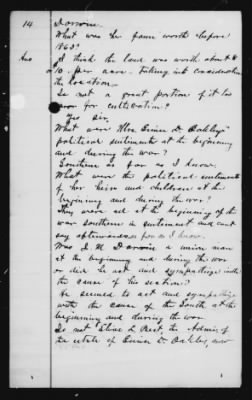 14 Dorroin.
What was the farm worth before
1863?
Ans I think the land was worth about 8
or 10. per acre. taking into consideration
the location.
Is not a great portion of it too
for cultivation?
Yes Sir.
What were Mrs. Louisa D. Oakley's
political sentiments at the beginning
and during the war?
Southern as far as I know.
What were the political sentiments
of her heirs and children at the
beginning and during the war?
They were all at the beginning of the
war southern in sentiment and cant
say afterwards, as far as I know.
Was J. H. a union man
at the beginning and during the war
or did he act and sympathize with
the cause of his section?
He seemed to act and sympathize
with the cause of the South at the
beginning and during the war
Is not D. the Admr. of
the estate of Louisa D. Oakley, now